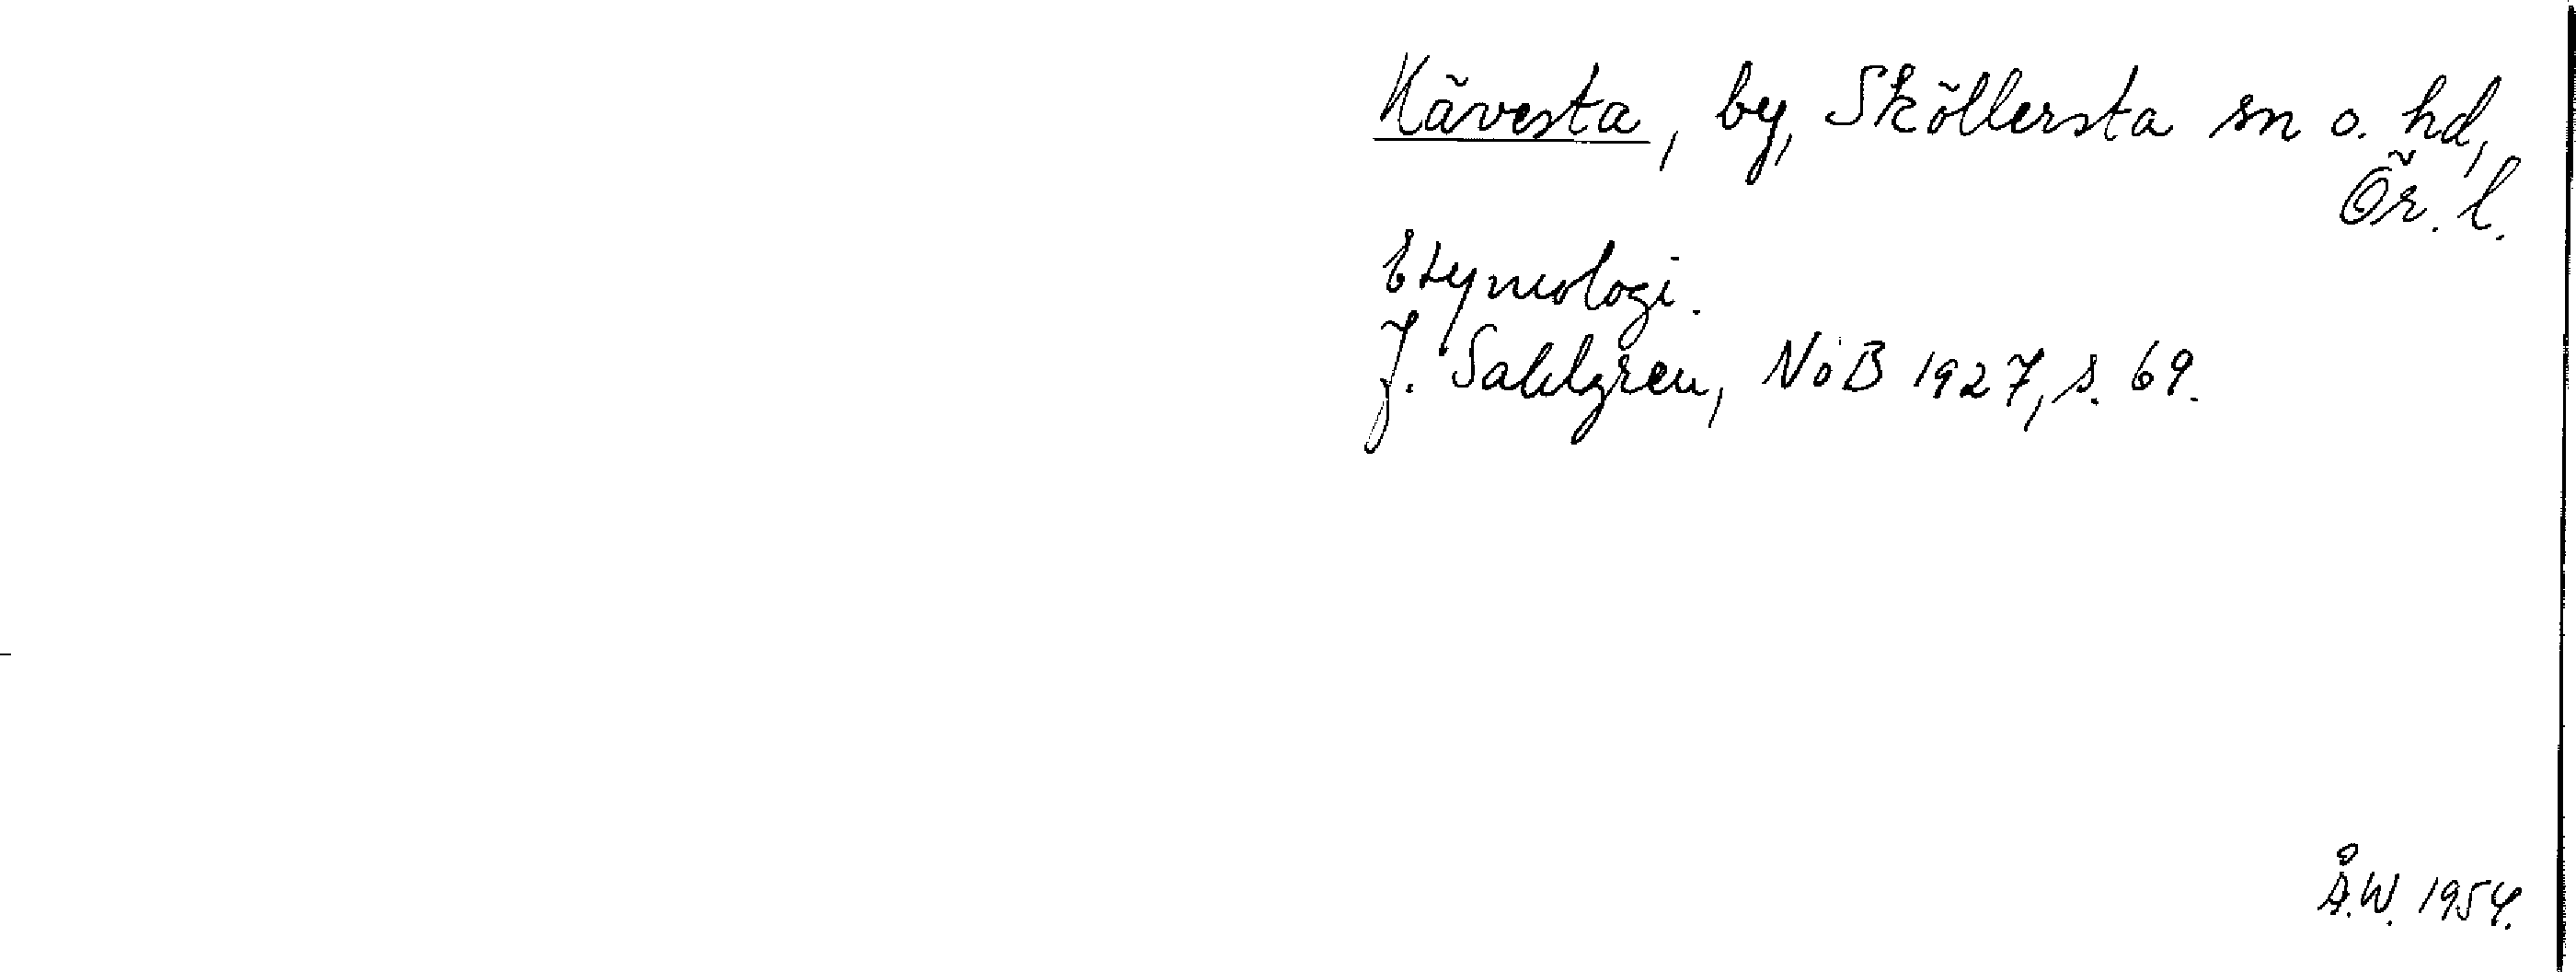 Kävesta, by, Sköllersta sn o. hd,
Ör. l.
Etymologi.
J. Sahlgren, NoB 1927, s. 69.
Å.W. 1954.